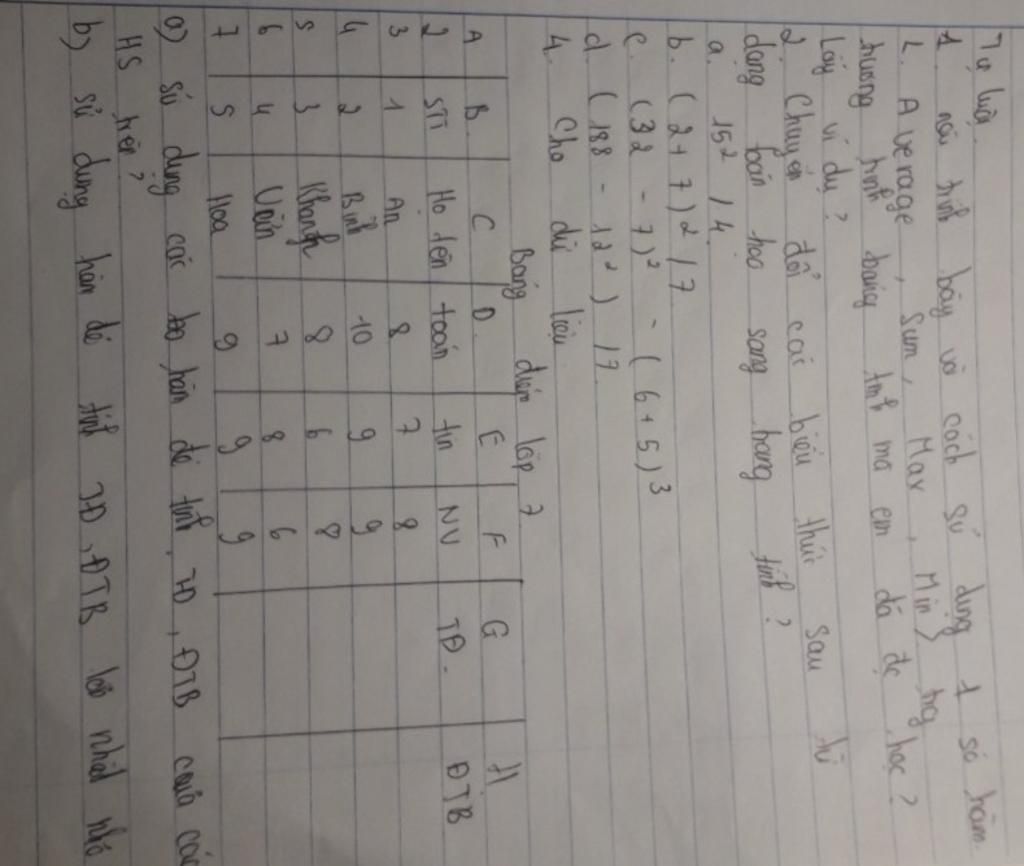 Tự luận
1. nói trình bày và cách sử dụng 1 số hàm
L. Average, Sum, Max, Min} trg
chương trình bảng tính mà em đã đc học?
Lấy ví dụ?
2. Chuyển đổi các biểu thức sau từ
dạng toán học sang trang tính?
a. 15² / 4
b. (2+7)² / 7
c. (32 - 7)² - (6+5)³
d. (188 - 12²) / 7
4. Cho dữ liệu
Bảng điểm lớp 7
A B C D. E F G H
2 STT Họ tên toán tin NV TĐ. ĐTB
3 1 An 8 7 8
4 2 Bình 10 9 9
5 3 Khanh 8 6 8
6 4 Vân 7 8 6
7 5 Hoa 9 9 9
a) sử dụng các hàm để tính TĐ, ĐTB của các
HS trên?
b) sử dụng hàm để tính TĐ, ĐTB lớn nhất nhỏ